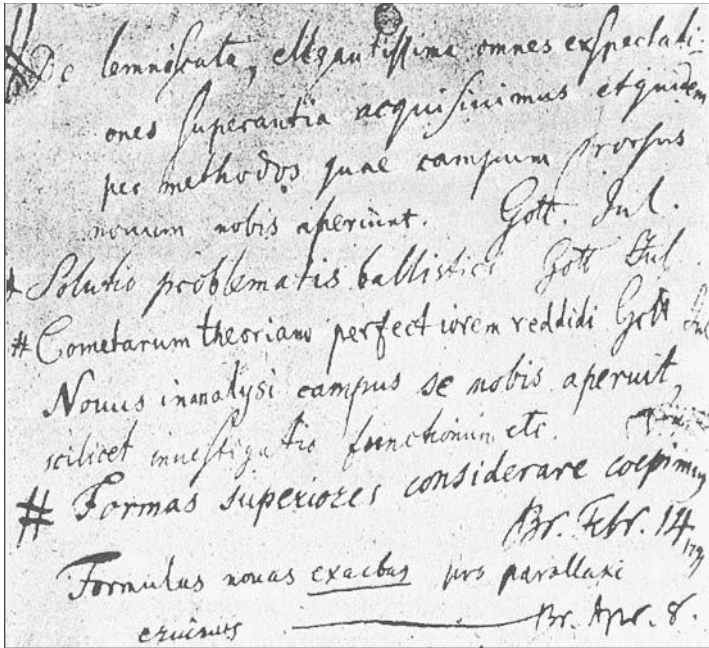 # De lemniscata, elegantissima omnes exspectati-
ones superantia acquisivimus et quidem
per methodos quae campum prorsus
novum nobis aperiunt. Gott. Jul.
Solutio problematis ballistici Gott Jul
# Cometarum theoriam perfectiorem reddidi Gott Jul
Novus in analysi campus se nobis aperuit,
scilicet investigatio functionum etc.
# Formas superiores considerare coepimus
Br. Febr. 14
1799
Formulas novas exactas pro parallaxi
eruimus Br. Apr. 8.